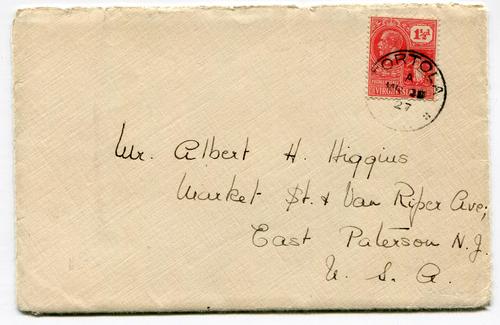 1½d
VIRGIN ISLANDS
TORTOLA
A
27
Mr. Albert H. Higgins
Market St. & Van Riper Ave;
East Paterson N.J.
U. S. A.